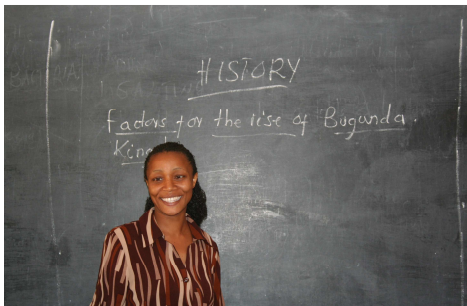 HISTORY
Factors for the rise of Buganda.
King